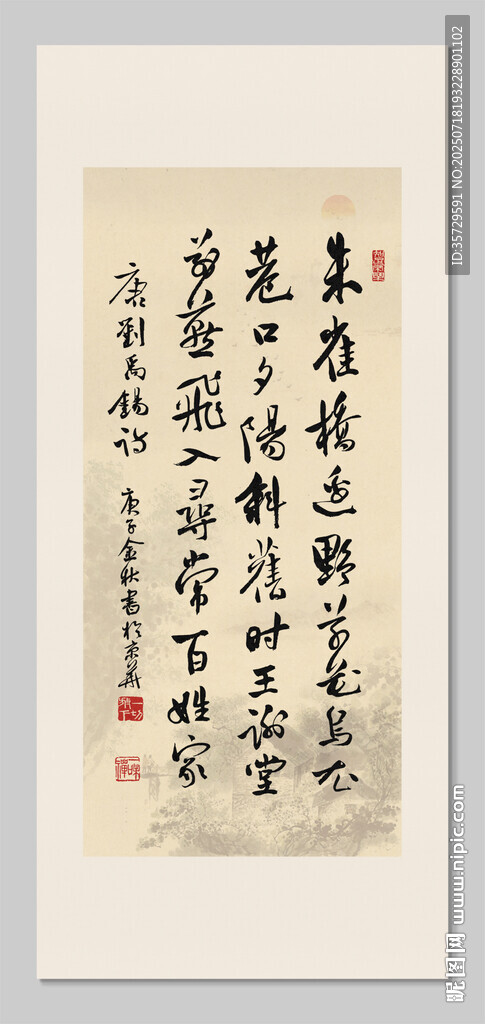 朱雀橋邊野草花烏衣
巷口夕陽斜舊时王謝堂
前燕飛入尋常百姓家
唐劉禹錫詩
庚子金秋書於京華
一切放下
ID:35729591 NO:20250718193228901102
昵图网 www.nipic.com